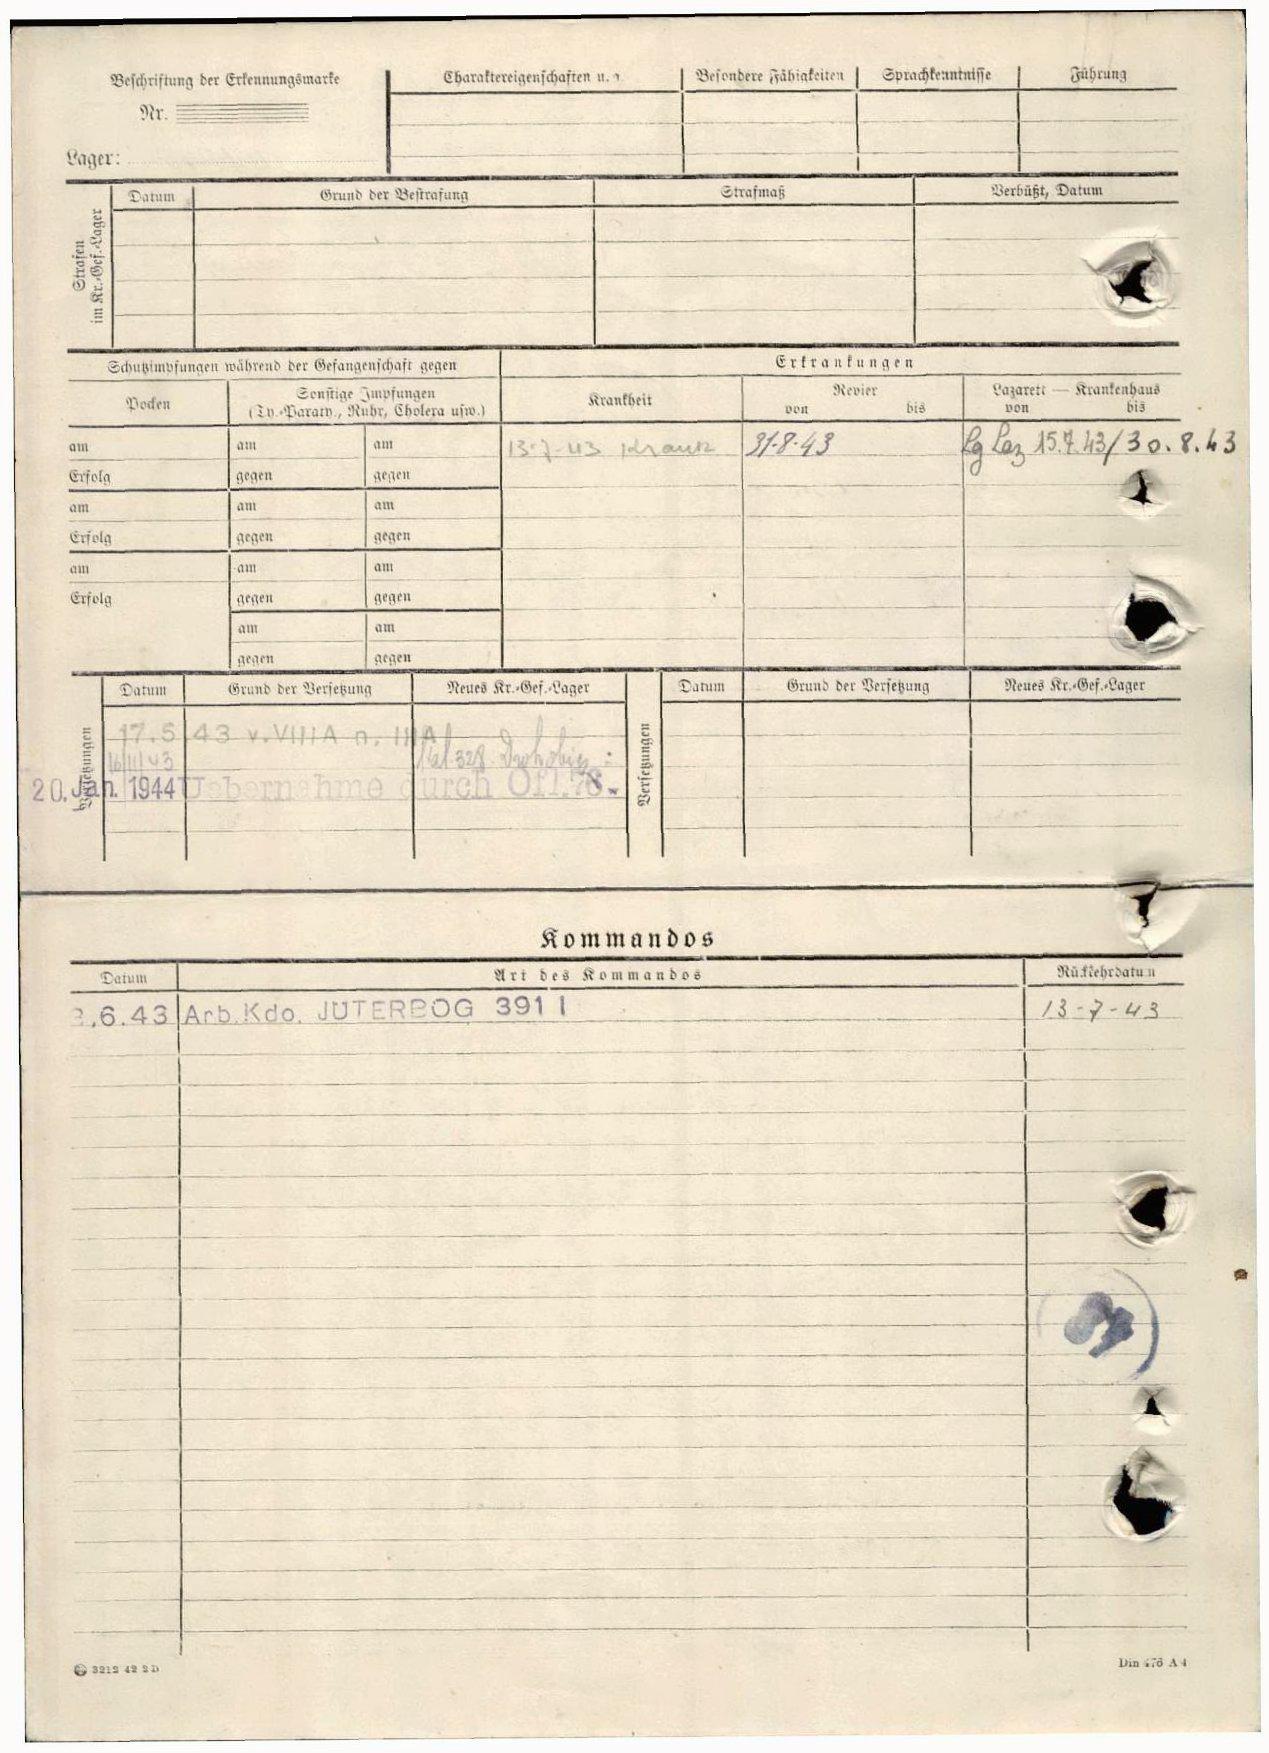 Beschriftung der Erkennungsmarke
Nr.
Lager:
Charaktereigenschaften u.
Besondere Fähigkeiten
Sprachkenntnisse
Führung
Strafen im Kr.-Gef.-Lager
Datum
Grund der Bestrafung
Strafmaß
Verbüßt, Datum
Schutzimpfungen während der Gefangenschaft gegen
Erkrankungen
Pocken
Sonstige Impfungen
(Ty.-Paraty., Ruhr, Cholera usw.)
Krankheit
Revier
von bis
Lazarett — Krankenhaus
von bis
am am am
13-7-43 Krank 31-8-43 Lg Laz 15.7.43/30.8.43
Erfolg gegen gegen
am am am
Erfolg gegen gegen
am am am
Erfolg gegen gegen
am am
gegen gegen
Versetzungen
Datum Grund der Versetzung Neues Kr.-Gef.-Lager
17.5.43 v. VIII A n. III A
16/11/43 328
20. Jan. 1944 Uebernahme durch Ofl. 78.
Versetzungen
Datum Grund der Versetzung Neues Kr.-Gef.-Lager
Kommandos
Datum Art des Kommandos Rückkehrdatum
.6.43 Arb. Kdo. JÜTERBOG 391 I 13-7-43
3212 42 2 D
Din 476 A 4